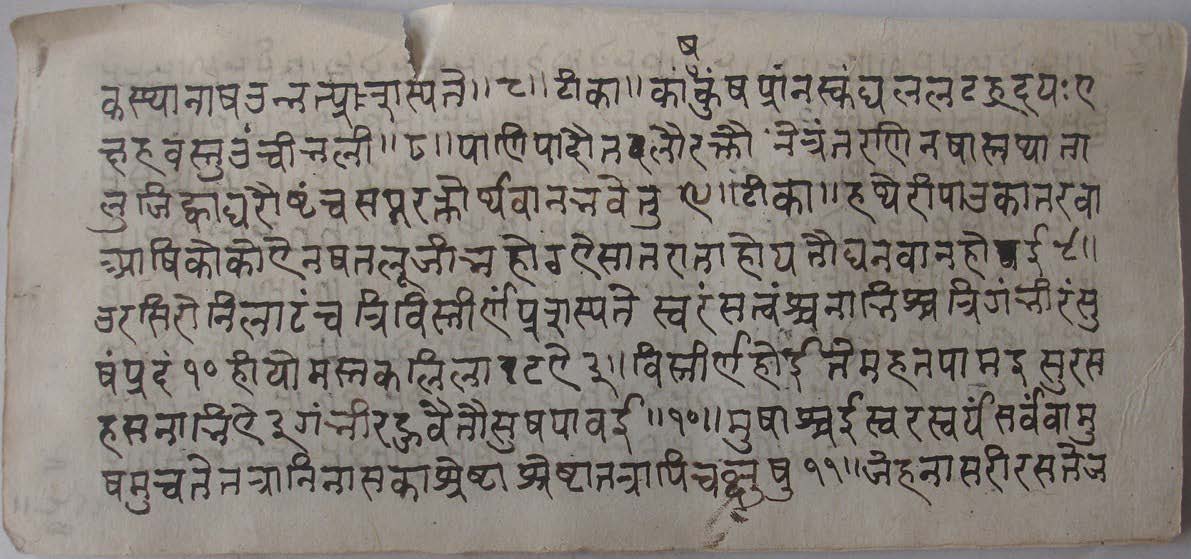 ष
कस्यानाषउन्नत्याःप्रास्पते॥८॥टीका॥कांकुंषप्रांनस्कंघललटह्रदयःए
न्नहवस्तुउंच्चीन्नली॥८॥पाणिपादौतलौरक्तौ नेत्रंतराणिनषास्तथाता
लुजिह्वाघरौष्टंचसप्तरक्तोर्थवानन्नवेतु ९॥टीका॥हथेरीपाउकातरवा
आषिकौकोएेनषतलूजीन्नहोठएेसातरा‌ताहोयतौघनवानहोवई९॥
उरसिरोनिलाटंचत्रिविस्तीर्णंप्रास्पते स्वरंसत्वंश्चनान्निश्चत्रिगंन्नीरंसु
षंप्रदं१०हीयोमस्तकलिलाटएे३॥विस्तीर्णहोईतेमहतपामइसुरस
हसनान्निएे३गंन्नीरहुवैतौसुषपावई॥१०॥मुषाश्चईस्वरस्वर्यंसर्वंवामु
षमुच्चतेतत्रानिनासकाश्रेष्टाश्रेष्टातत्रापिचक्षुषु११॥जेहनासरीरसतेज